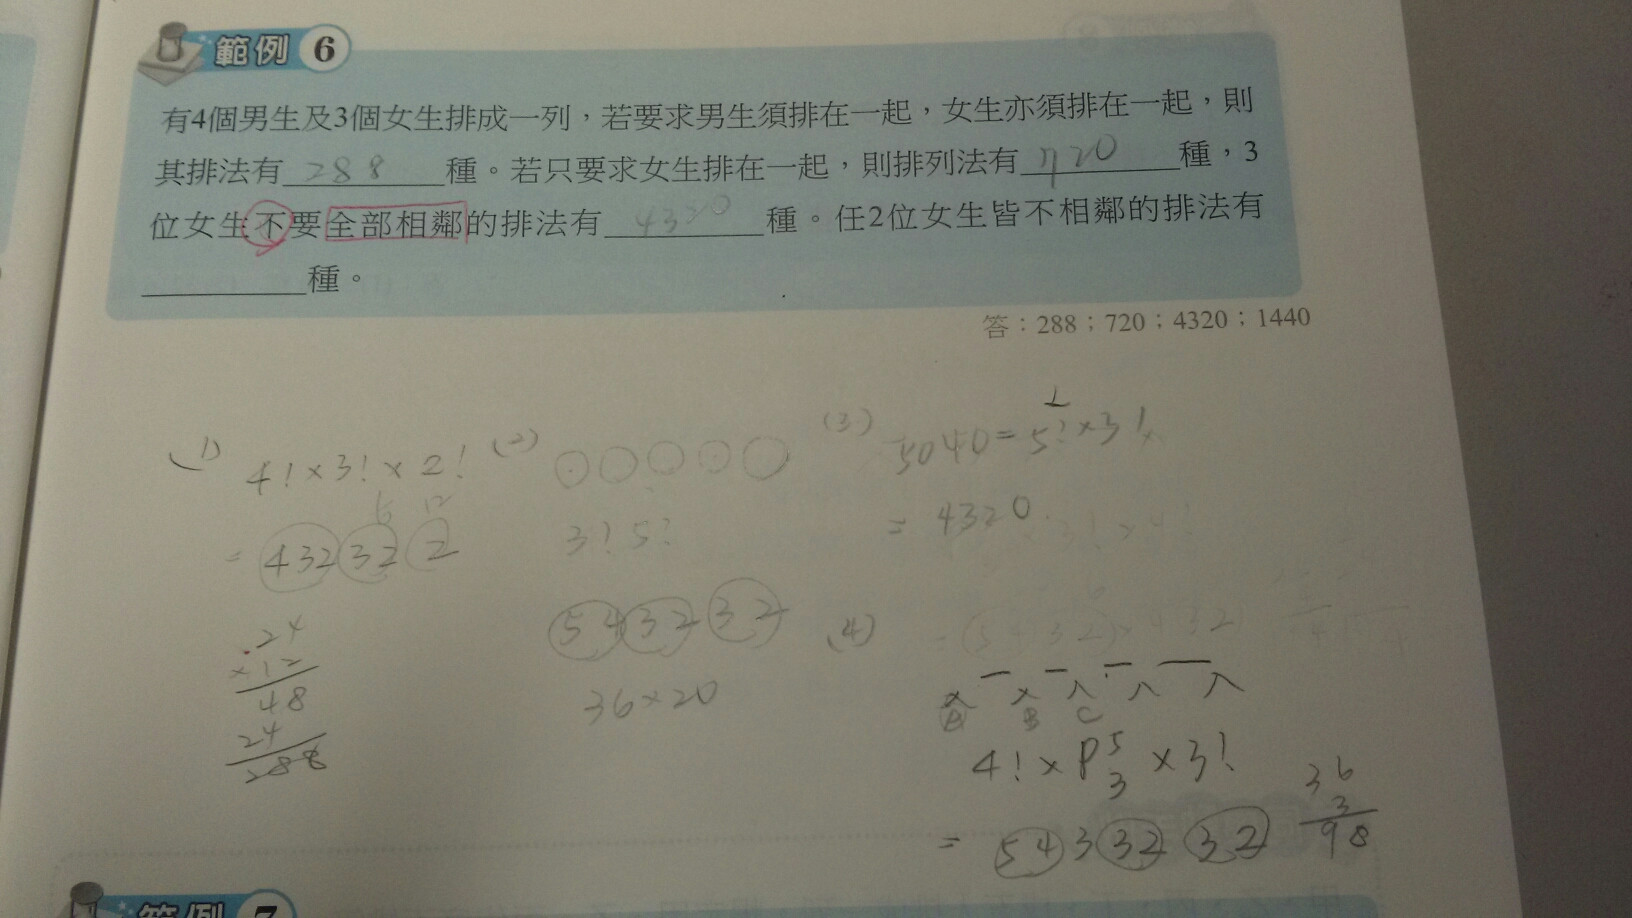 範例 6
有4個男生及3個女生排成一列，若要求男生須排在一起，女生亦須排在一起，則
其排法有 288 種。若只要求女生排在一起，則排列法有 720 種，3
位女生不要全部相鄰的排法有 4320 種。任2位女生皆不相鄰的排法有
種。
答：288；720；4320；1440
(1) 4!×3!×2!
= 432 32 2
24
×12
48
24
288
(2)
3!5!
54 32 32
36×20
(3) 5040=5!×3!
= 4320
(4)
A B C
4!×P⁵₃×3!
= 54 3 32 32
36
3
98
範例 7